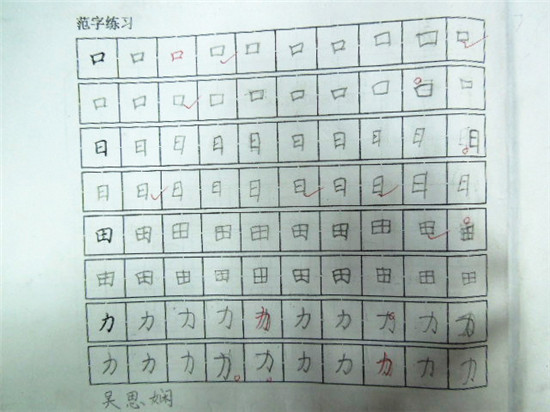 范字练习
口 口 口 口 口 口 口 口 口 口
口 口 口 口 口 口 口 口 口 口
日 日 日 日 日 日 日 日 日 日
日 日 日 日 日 日 日 日 日 日
田 田 田 田 田 田 田 田 田 田
由 田 田 田 田 田 田 田 田 田
力 力 力 力 力 力 力 力 力 力
力 力 力 力 力 力 力 力 力 力
吴思娴